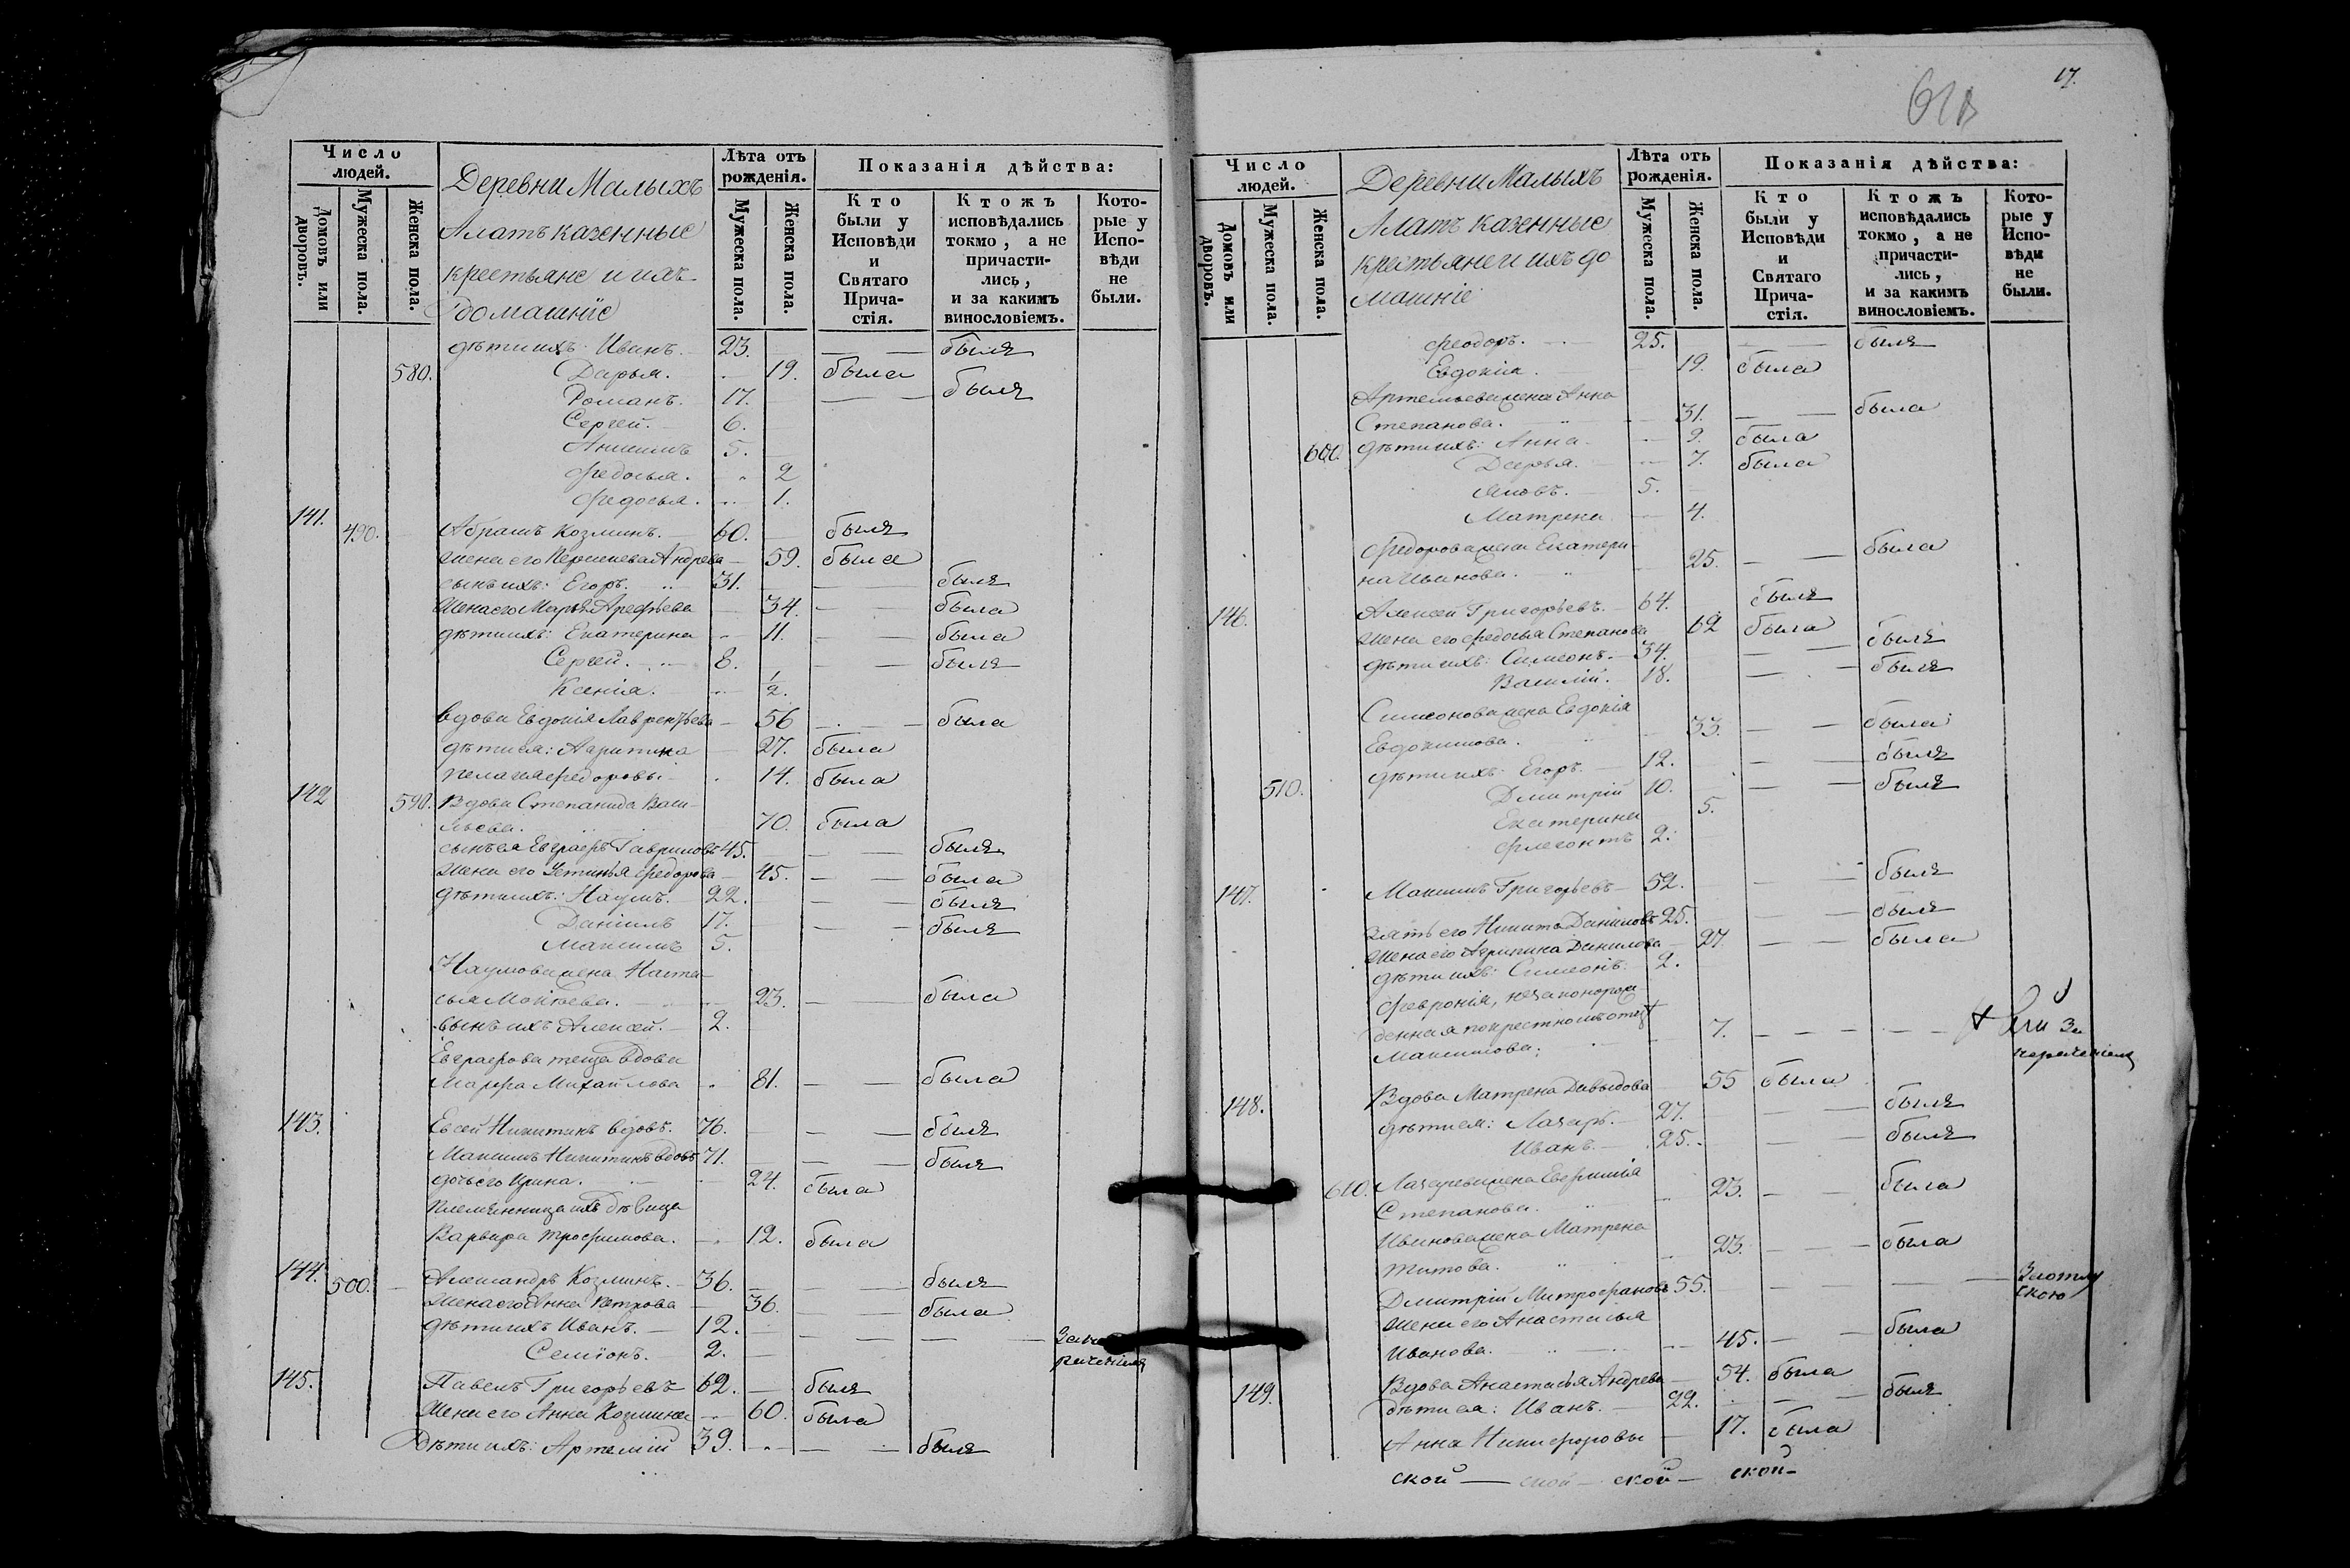 Число людей.
Домовъ или дворовъ.
Мужеска пола.
Женска пола.
Деревни Малыхъ
Алатъ казенные
крестьяне и ихъ
домашніе
Лѣта отъ рожденія.
Мужеска пола.
Женска пола.
Показанія дѣйства:
Кто были у Исповѣди и Святаго Причастія.
Ктожъ исповѣдались токмо, а не причастились, и за какимъ винословіемъ.
Которые у Исповѣди не были.
дѣти ихъ: Иванъ. 23. былъ
580. Дарья. 19. была
Романъ. 17. былъ
Сергей. 6.
Анисимъ 5.
Федосья. 2
Федосья. 1.
141. 490. Абрамъ Козминъ. 60. былъ
жена его Андрева 59. была
сынъ ихъ: Егоръ. 31. былъ
жена его Марья Арефьева 34. была
дѣти ихъ: Екатерина 11. была
Сергей. 8. былъ
Ксенія. 1/2.
вдова Евдокія Лаврентьева 56 была
дѣти ея: Агрипина 27. была
Пелагея Федоровы 14. была
142 590. Вдова Степанида Васи-
льева. 70. была
сынъ ея Евграфъ Гавриловъ 45. былъ
жена его Устинья Федорова 45. была
дѣти ихъ: Наумъ. 22. былъ
Даніилъ 17. былъ
Максимъ 5.
Наумова жена Наста-
сья Моисеева. 23. была
сынъ ихъ Алексей. 2.
Евграфова теща вдова
Марфа Михайлова 81. была
143. Евсей Никитинъ вдовъ. 76. былъ
Максимъ Никитинъ вдовъ 71. былъ
дочь его Ирина. 24. была
племянница ихъ дѣвица
Варвара Трофимова. 12. была
144. 500. Александръ Козминъ. 36. былъ
жена его Анна Петрова 36. была
дѣти ихъ Иванъ. 12. За
Семіонъ. 2.
145. Павелъ Григорьевъ 62. былъ
жена его Анна Козмина 60. была
дѣти ихъ: Артемій 39. былъ
17.
Число людей.
Домовъ или дворовъ.
Мужеска пола.
Женска пола.
Деревни Малыхъ
Алатъ казенные
крестьяне и ихъ до
машніе
Лѣта отъ рожденія.
Мужеска пола.
Женска пола.
Показанія дѣйства:
Кто были у Исповѣди и Святаго Причастія.
Ктожъ исповѣдались токмо, а не причастились, и за какимъ винословіемъ.
Которые у Исповѣди не были.
Феодоръ. 25. былъ
Евдокія. 19. была
Артемьева жена Анна
Степанова. 31. была
600. дѣти ихъ: Анна 9. была
Дарья. 7. была
Яковъ. 5.
Матрена 4.
Федорова жена Екатери-
на Иванова. 25. была
146. Алексей Григорьевъ. 64. былъ
жена его Федосья Степанова 62 была
дѣти ихъ: Симеонъ. 34. былъ
Василій. 18. былъ
Симеонова жена Евдокія
Евдокимова. 33. была
дѣти ихъ: Егоръ. 12. былъ
510. Дмитрій 10. былъ
Екатерина 5.
Флегонтъ 2.
147. Максимъ Григорьевъ 52. былъ
зять его Никита Даниловъ 25. былъ
жена его Агрипина Данилова 27. была
дѣти ихъ: Симеонъ. 2.
Февронія, незаконорож
денная по крестному отцу
Максимова; 7. за
148. Вдова Матрена Давыдова 55 была
дѣти ея: Лазарь. 27. былъ
Иванъ. 25. былъ
610. Лазарева жена Евфимія
Степанова. 23. была
Иванова жена Матрена
Титова. 23. была
Дмитрій Митрофановъ 55. За отлу
скою
жена его Анастасья
Иванова. 45. была
149. Вдова Анастасья Андрева 54. была
дѣти ея: Иванъ. 22. былъ
Анна Никифоровы 17. была
ской — ской — ской — ской —